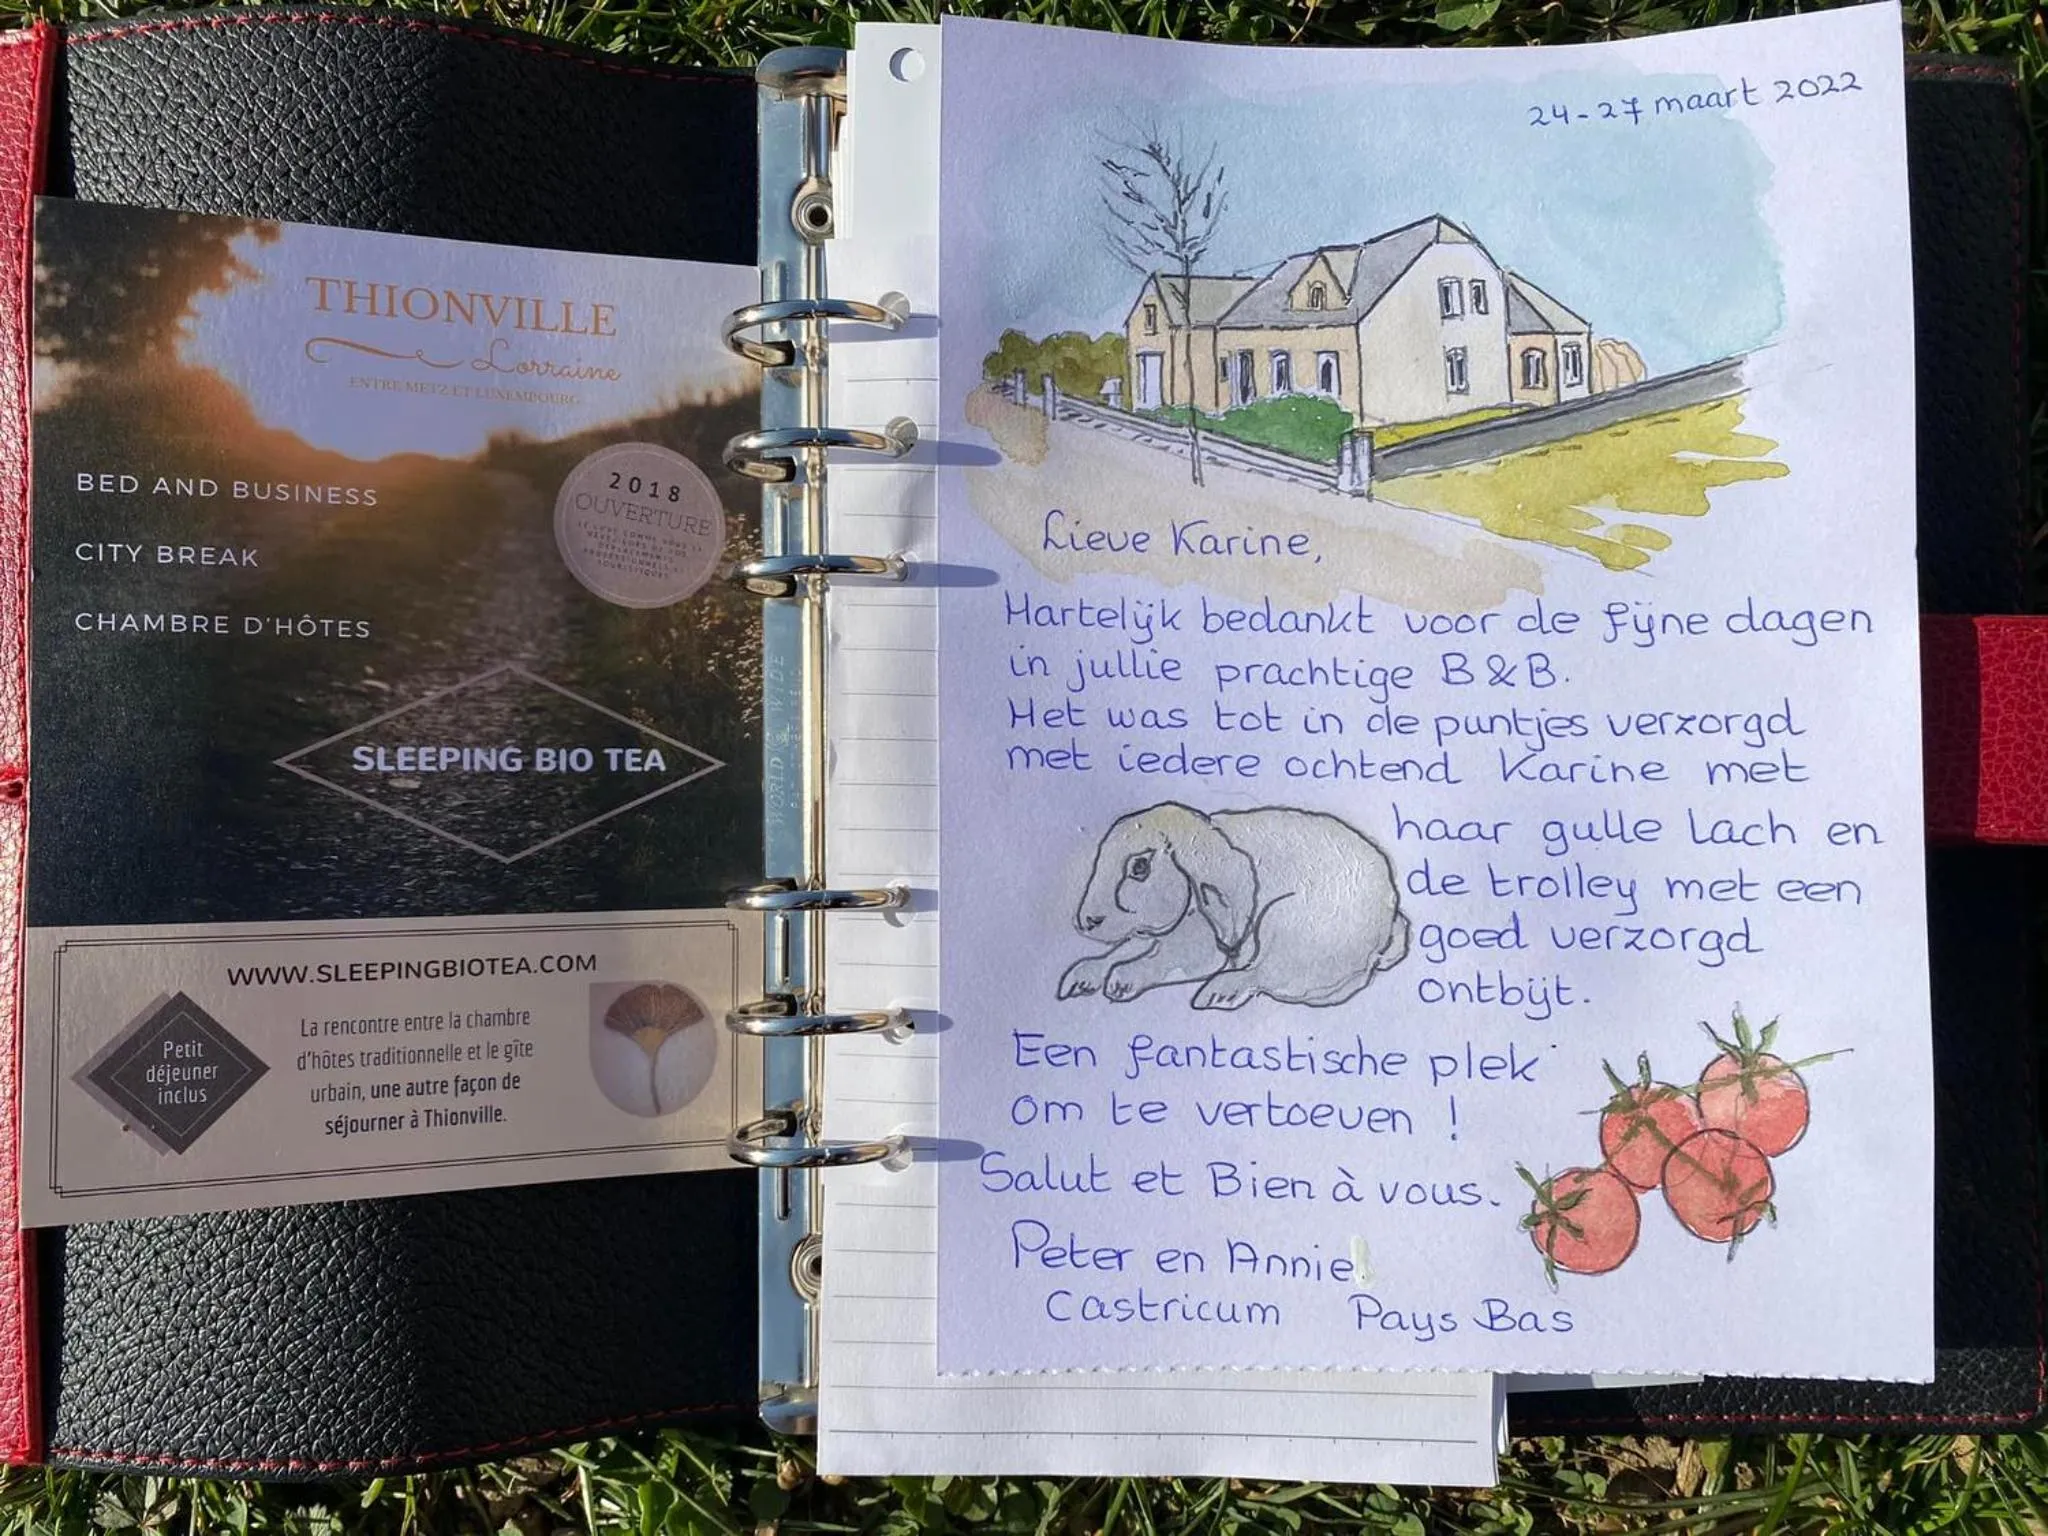 THIONVILLE
Lorraine
ENTRE METZ ET LUXEMBOURG
BED AND BUSINESS
CITY BREAK
CHAMBRE D'HÔTES
2018
OUVERTURE
SLEEPING BIO TEA
WWW.SLEEPINGBIOTEA.COM
Petit
déjeuner
inclus
La rencontre entre la chambre
d'hôtes traditionnelle et le gîte
urbain, une autre façon de
séjourner à Thionville.
WORLD WIDE
24-27 maart 2022
Lieve Karine,
Hartelijk bedankt voor de fijne dagen
in jullie prachtige B & B.
Het was tot in de puntjes verzorgd
met iedere ochtend Karine met
haar gulle lach en
de trolley met een
goed verzorgd
ontbijt.
Een fantastische plek
om te vertoeven !
Salut et Bien à vous.
Peter en Annie
Castricum Pays Bas